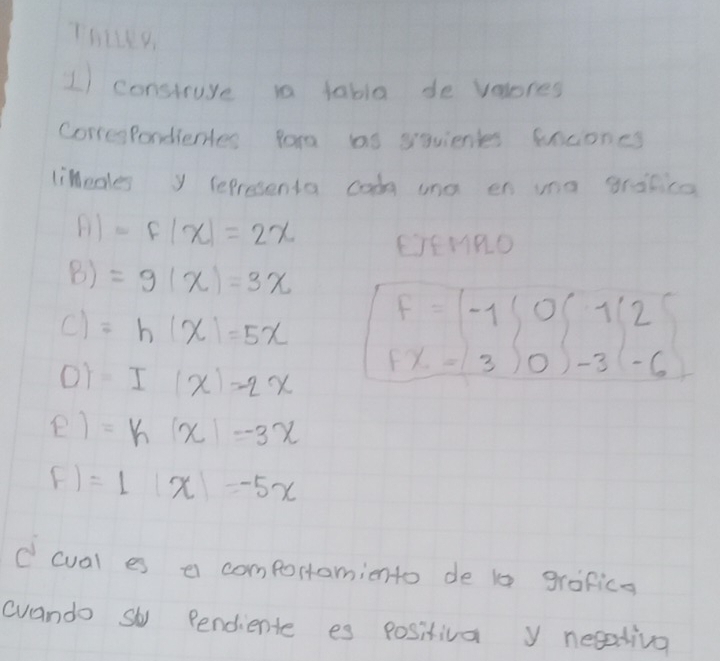 TALLER,
1) construye la tabla de valores
correspondientes para las siguientes funciones
lineales y representa cada una en una gráfica
A) = f(x) = 2x
EJEMPLO
B) = g(x) = 3x
C) = h(x) = 5x
F = -1 0 1 2
FX = 3 0 -3 -6
D) = I (x) = -2x
E) = K (x) = -3x
F) = l (x) = -5x
cual es el comportamiento de la gráfica
cuando su Pendiente es Positiva y negativa